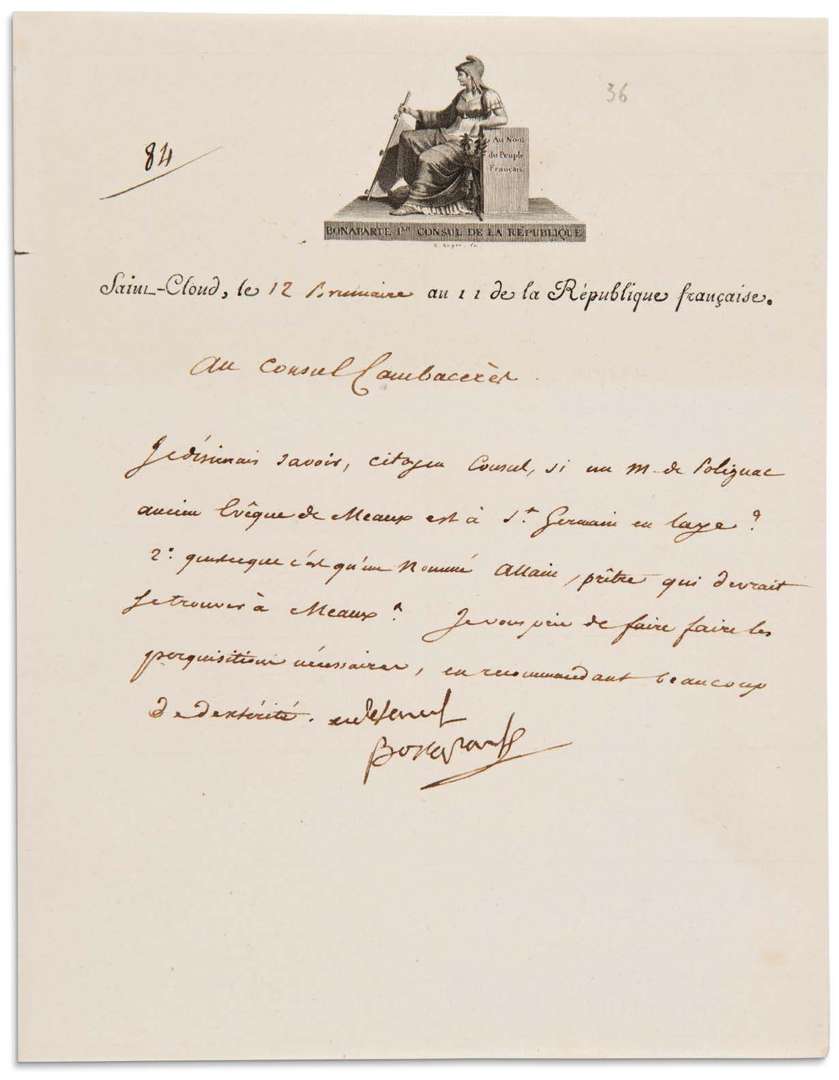 36
84
Au Nom
du Peuple
Français.
BONAPARTE 1er CONSUL DE LA RÉPUBLIQUE
Saint-Cloud, le 12 Brumaire an 11 de la République française.
Au Consul Cambacérès.
Je désirerais savoir, citoyen Consul, si un M. de Polignac
ancien Evêque de Meaux est à St. Germain en laye ?
2° qu'estceque c'est qu'un Nommé Allain, prêtre qui devrait
se trouver à Meaux ? Je vous prie de faire faire les
perquisitions nécessaires, en recommandant beaucoup
de dextérité.
Bonaparte